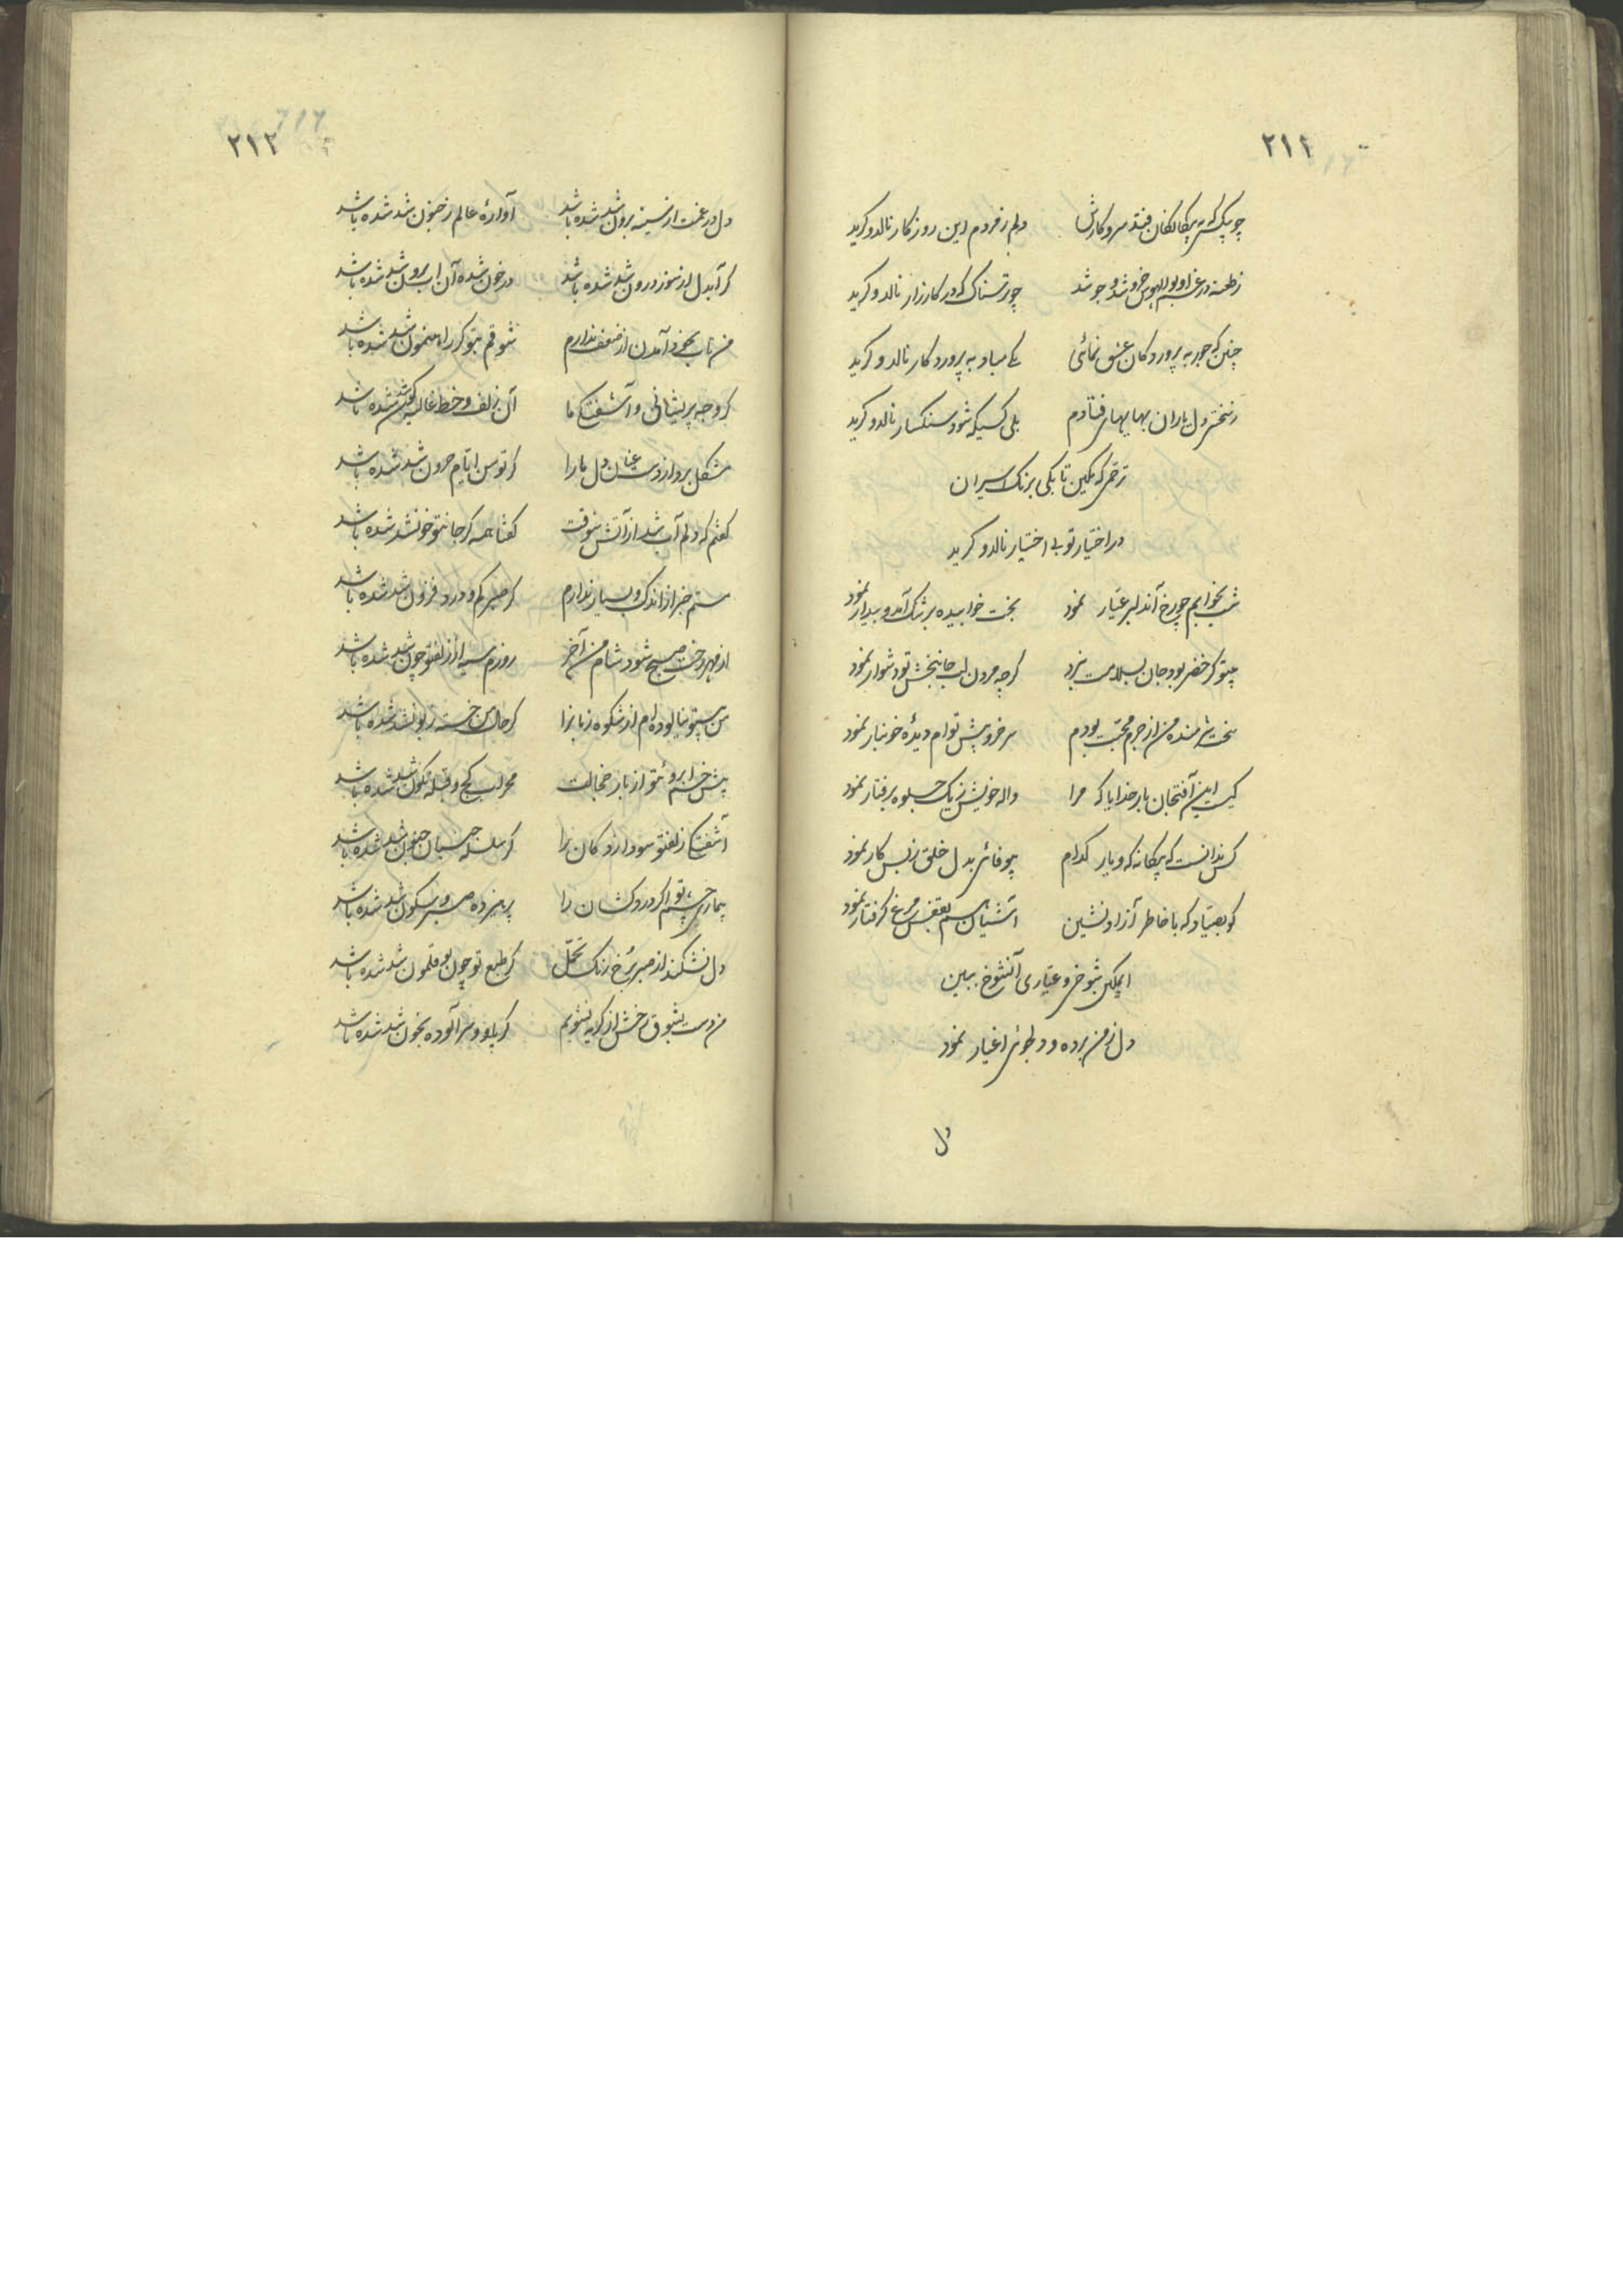 ۲۱۱
چو بیکسی که به بیگانگان فتد سر و کارش دلم ز فردم این روزگار نالد و گرید
ز طعنه در غم او بوالهوس خروشد و جوشد چو ترسناک که در کارزار نالد و گرید
چنین که جور به پروردگان عشق نمائی یکی مباد به پروردگار نالد و گرید
ز سختی دل یاران بهایهای فتادم بلی کسیکه شود سنگسار نالد و گرید
ترحمی که مکین تا بکی برنک اسیران
در اختیار تو بی اختیار نالد و گرید
شب بخوابم چو رخ آن دلبر عیار نمود بخت خوابیده برشک آمد و بیدار نمود
بیتو گر خضر بود جان بسلامت نبرد گرچه مردن لب جانبخش تو دشوار نمود
سخت شرمنده من از جرم محبت بودم سرخ رو پیش توام دیدهٔ خونبار نمود
کیست این آفتجان بار خدایا که مرا واله خویش ز یک جلوه برفتار نمود
کس ندانست که بیگانه که و یار کدام بیوفائی بدل خلق ز بس کار نمود
کو بصیاد که با خاطر آزاد نشین آشیان هم بقفس مرغ گرفتار نمود
ای مکین شوخی و عیاری آنشوخ ببین
دل ز من برده و دلجوئی اغیار نمود
دل
۲۱۲
دل در غمت از سینه برون شد شده باشد آوارهٔ عالم ز جنون شد شده باشد
گر آبدل از سوز درون شد شده باشد ور خون شده آن اب برون شد شده باشد
من تاب بخود آمدن از ضعف ندارم شوقم بتو گر راهنمون شد شده باشد
گر وجه پریشانی و آشفتگی ما آن زلف و خط غالیه گون شد شده باشد
مشکل برد از دست عنان دل ما را گر توسن ایام حرون شد شده باشد
گفتم که دلم آب شد از آتش شوقت گفتا همه گر جانتو خونشد شده باشد
مستم خبر از اندک و بسیار ندارم گر صبر کم و درد فزون شد شده باشد
از مهر رخت صبح شود شام من آخر روزم سیه ار زلفتو چون شد شده باشد
من بیتو نیالوده‌ام از شکوه زبانرا گر حال من خسته زبونشد شده باشد
پیش خم ابروی تو از بار خجالت محراب کج و قبله نگون شد شده باشد
آشفتگی زلفتو سودازدگان را گر سلسله جنبان جنون شد شده باشد
بیماری چشم تو اگر دردکشان را پرهیزده صبر و سکون شد شده باشد
دل نشکند از صبر رخ رنگ تحمل گر طبع تو چون بوقلمون شد شده باشد
من دست بشوق رخش از گریه نشویم گر پا و سر آلوده بخون شد شده باشد